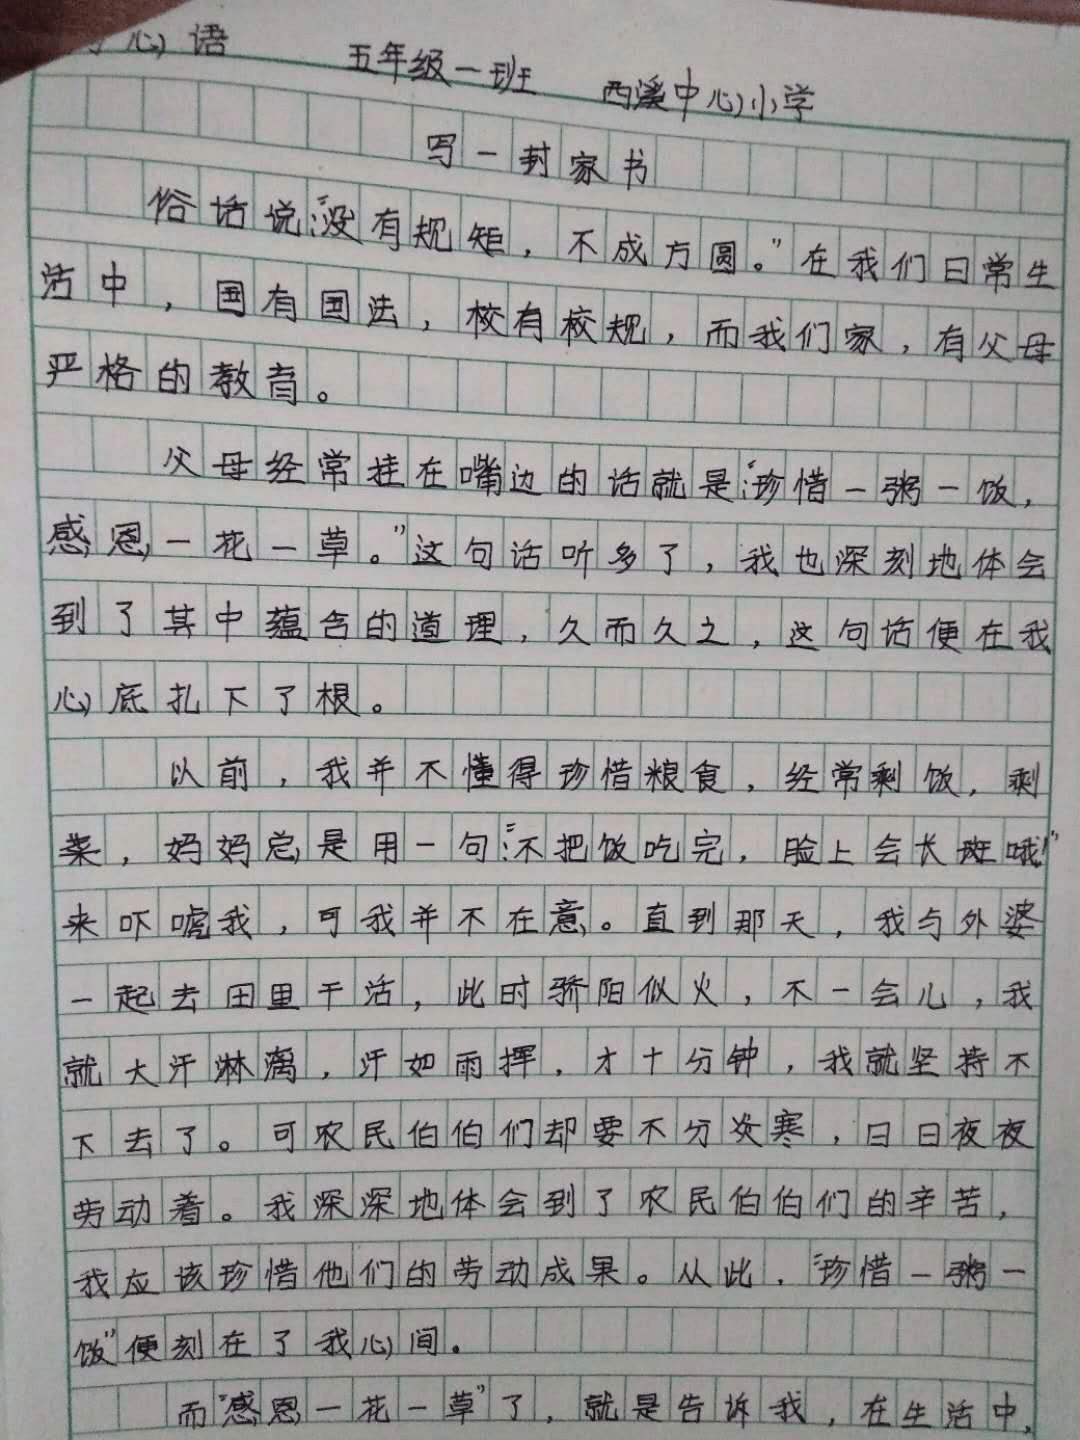 心语 五年级一班 西溪中心小学
写一封家书
俗话说:“没有规矩，不成方圆。”在我们日常生
活中，国有国法，校有校规，而我们家，有父母
严格的教育。
父母经常挂在嘴边的话就是:“珍惜一粥一饭，
感恩一花一草。”这句话听多了，我也深刻地体会
到了其中蕴含的道理，久而久之，这句话便在我
心底扎下了根。
以前，我并不懂得珍惜粮食，经常剩饭，剩
菜，妈妈总是用一句:“不把饭吃完，脸上会长斑哦!”
来吓唬我，可我并不在意。直到那天，我与外婆
一起去田里干活，此时骄阳似火，不一会儿，我
就大汗淋漓，汗如雨挥，才十分钟，我就坚持不
下去了。可农民伯伯们却要不分炎寒，日日夜夜
劳动着。我深深地体会到了农民伯伯们的辛苦，
我应该珍惜他们的劳动成果。从此，“珍惜一粥一
饭”便刻在了我心间。
而“感恩一花一草”了，就是告诉我，在生活中，